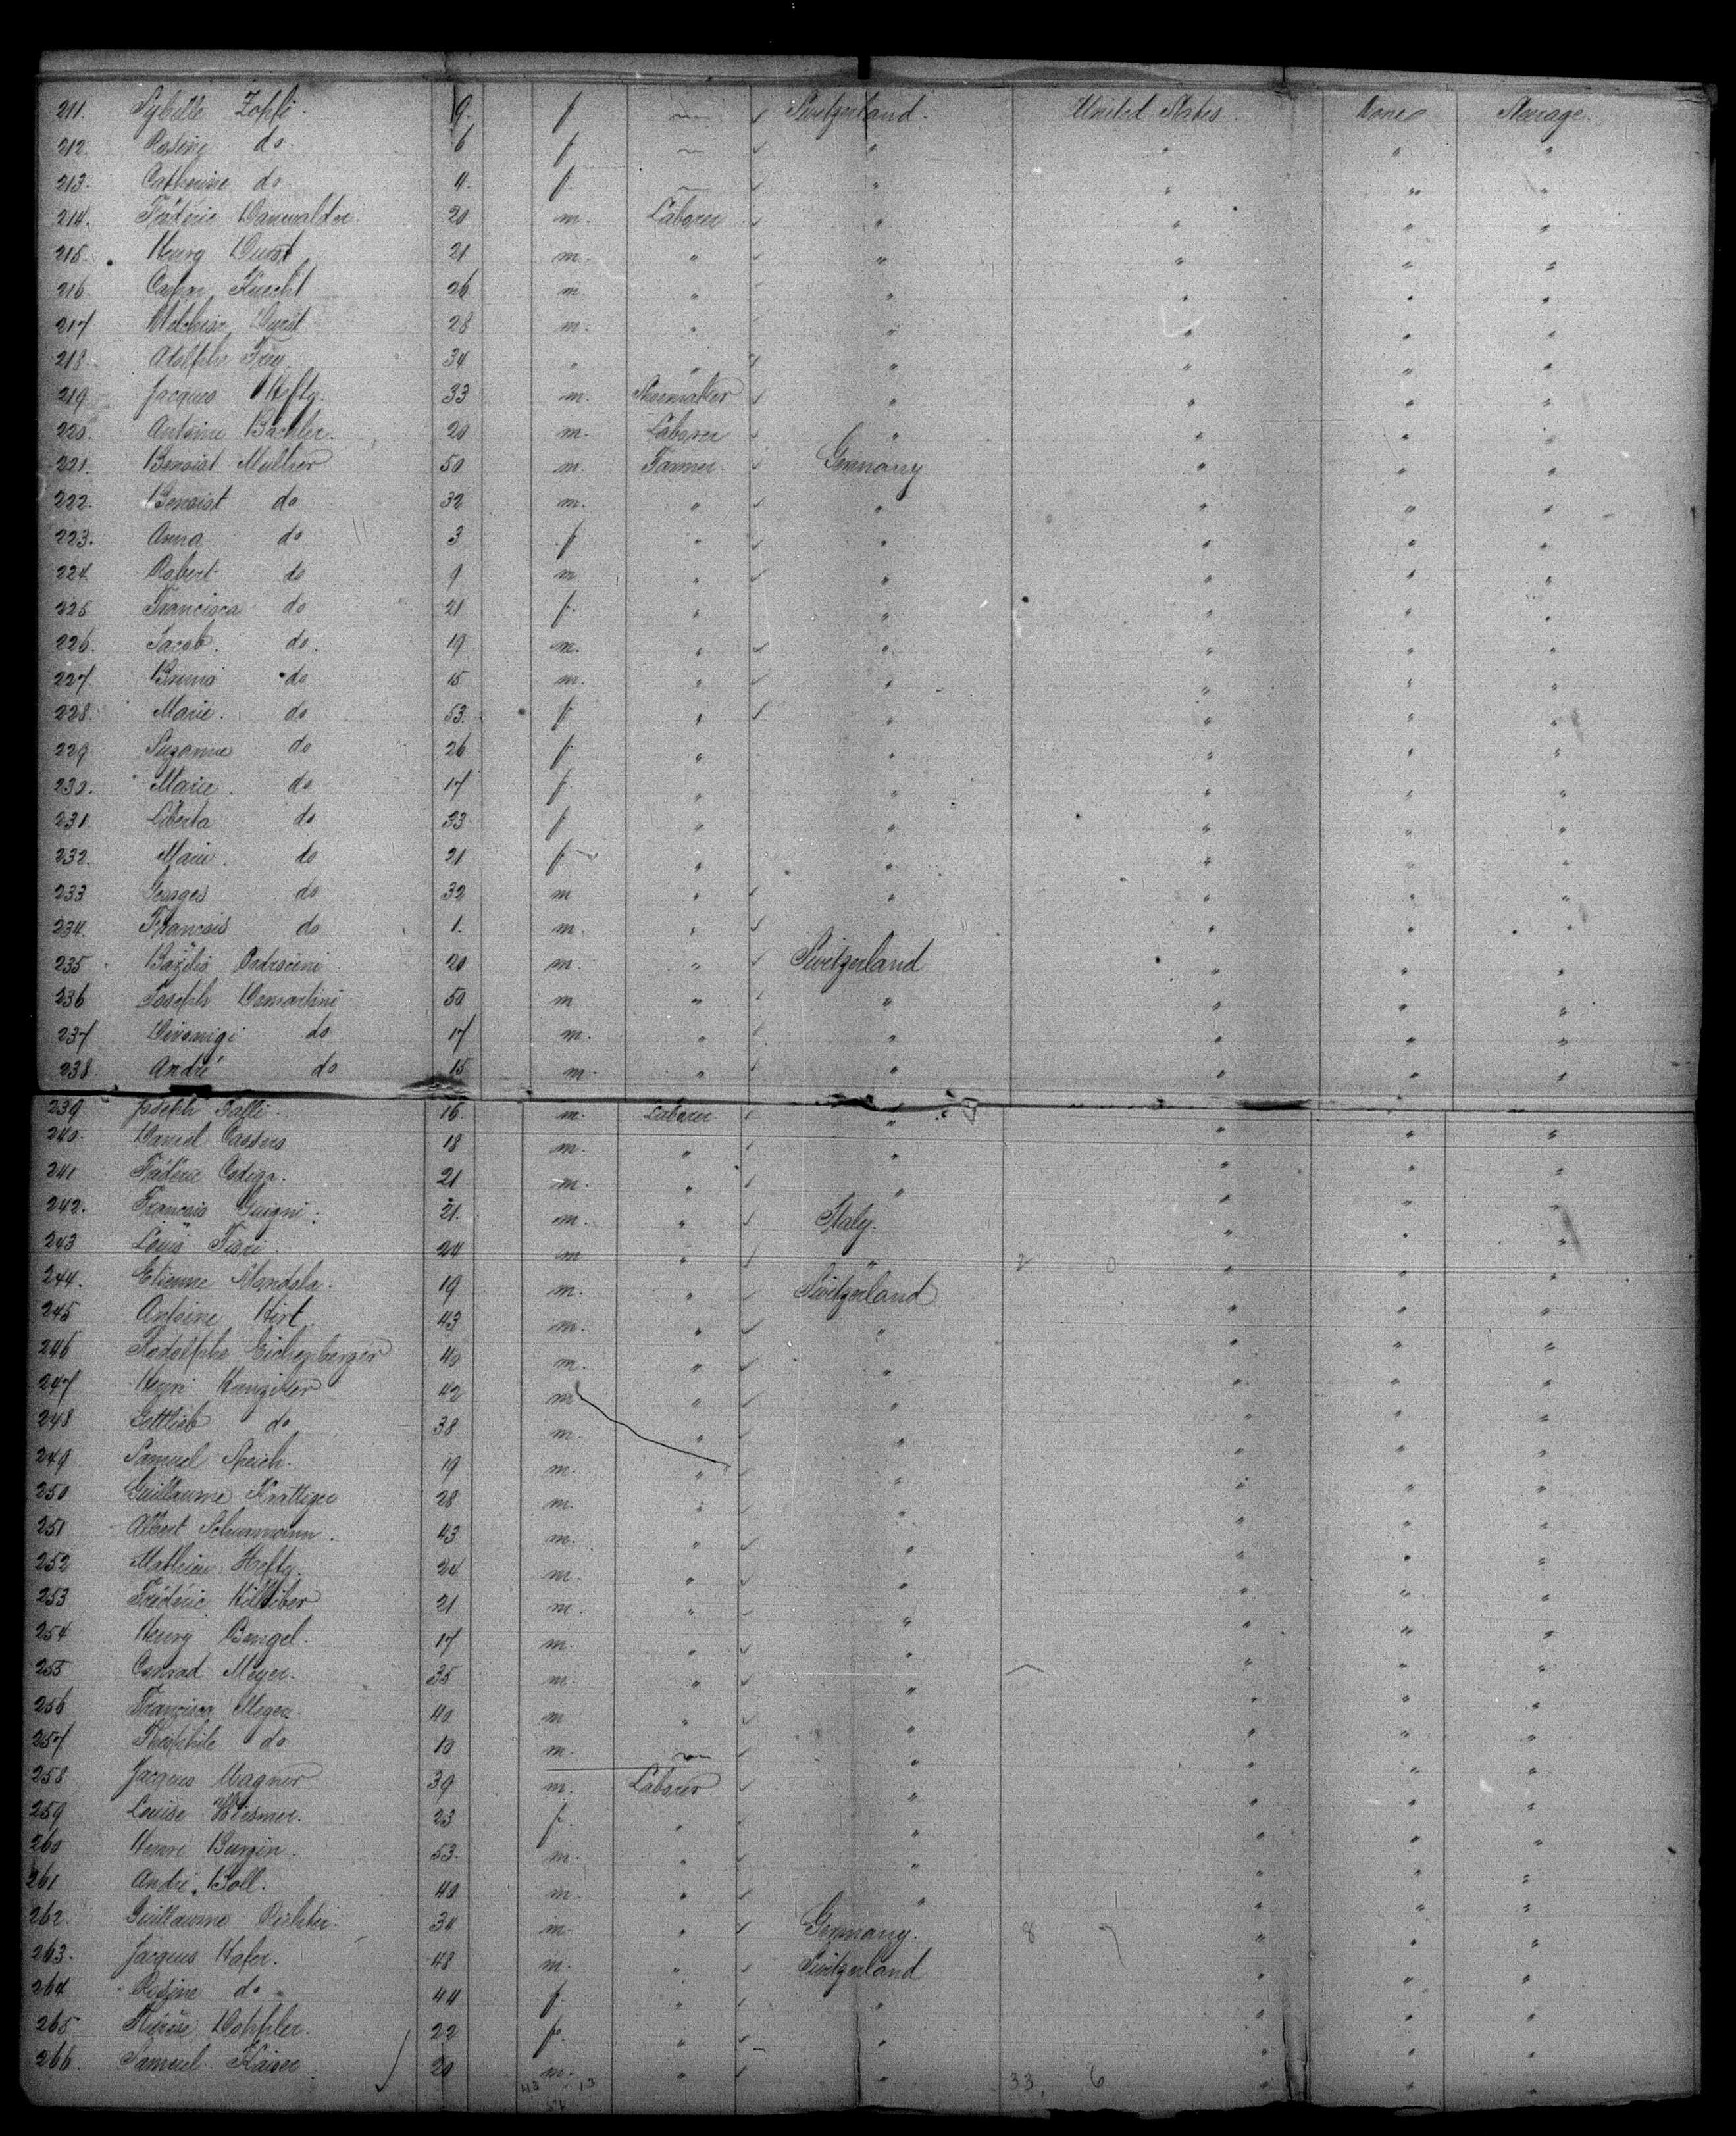 211. Sybille Zopfi. 9. f Switzerland. United States. None Steerage.
212. Rosine do. 6 f " " " "
213. Catherine do. 4. f. " " " "
214. Frédéric 20 m. Laborer " " " "
215. Henry Durst 21 m. " " " " "
216. Knecht 26 m. " " " " "
217 Melchior Durst 28 m. " " " " "
218. Adolphe Frey 34 " " " " " "
219 Jacques Hefty. 33 m. Shoemaker " " " "
220. Antoine Bachler. 20 m. Laborer " " " "
221. Benoist Mullier 50 m. Farmer. Germany " " "
222. Benoist do 32 m. " " " " "
223. Anna do 3 f " " " " "
224. Robert do 9 m " " " " "
225 Francisca do 21 f. " " " " "
226. Jacob. do. 19 m. " " " " "
227. Bruno do 15 m. " " " " "
228. Marie. do 53. f " " " " "
229 Suzanne do 26 f " " " " "
230. Marie. do 17 f " " " " "
231. Liberta do 33 f " " " " "
232. Marie. do 21 f " " " " "
233 Georges do 32 m " " " " "
234. Francois do 1. m. " " " " "
235 20 m. " Switzerland " " "
236 Joseph Demartini 50 m " " " " "
237 do 17 m. " " " " "
238. André do 15 m. " " " " "
239 Joseph Galli. 16 m. Laborer " " " "
240. Daniel 18 m. " " " " "
241 Frédéric 21 m. " " " " "
242. Francois Guigni. 21. m. " Italy. " " "
243 Louis 24 m " " " " "
244. Etienne 19 m. " Switzerland " " "
245 Antoine Hirt. 43 m. " " " " "
246 Rodolphe Eichenberger 40 m. " " " " "
247 Henri 42 m " " " " "
248 Gottlieb do 38 m. " " " " "
249 Samuel Speich. 19 m. " " " " "
250 Guillaume Krattiger 28 m. " " " " "
251 Albert Schurmann. 43 m. " " " " "
252 Mathieu Hefty. 24 m. " " " " "
253 Frédéric 21 m. " " " " "
254 Henry Bengel. 17 m. " " " " "
255 Conrad Meyer. 35 m. " " " " "
256 Francisca Meyer. 40 m " " " " "
257 Théophile do 10 m. " " " "
258 Jacques Wagner 39 m. Laborer " " " "
259 Louise Wiesmer. 23 f. " " " " "
260 Henri Burgin. 53. m. " " " " "
261 André Boll. 40 m. " " " " "
262. Guillaume Richter. 30 m. " Germany. " " "
263. Jacques Hafer. 48 m. " Switzerland " " "
264 Rosine do " 44 f. " " " " "
265 Thérèse 22 f. " " " " "
266. Samuel Kaiser. 20 m. " " " " "
33. 6